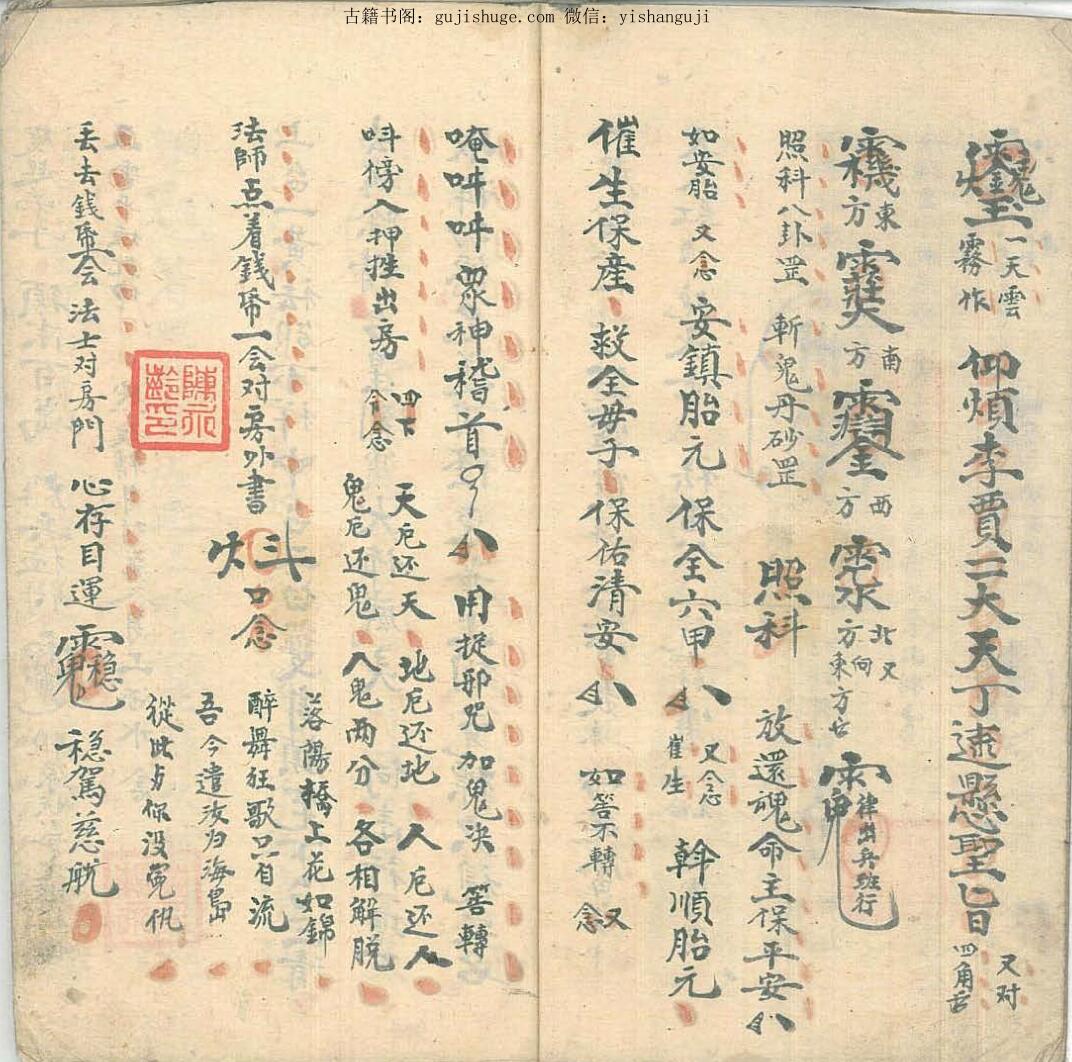 古籍书阁：gujishuge.com 微信：yishanguji
一天雲霧作 仰煩李賈二大天丁速懸聖 又对四角
東方 南方 西方 北方 又向東方 律出兵班行
照科八卦罡 斬鬼丹砂罡 照科 放還魂命主保平安
如安胎 又念 安鎮胎元 保全六甲 又念催生 斡順胎元
催生保產 救全母子 保佑清安 如筶不轉 又念
唵吽吽 眾神稽首 用捉邪咒 加鬼决 筶轉
四古 天厄还天 地厄还地 人厄还人
吽傍入押 出房 今念 鬼厄还鬼 人鬼两分 各相解脱
落陽橋上花如錦
法師点着錢帋一会对房外書 斗火 口念 醉舞狂歌只自流
吾今遣汝归海島
從此与你没冤仇
丢去錢帋 会 法士对房門 心存目運 穏 穏駕慈航
陳 齡印